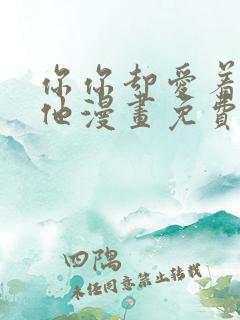 你你却愛着
他漫畫免費
四隅
未经同意禁止转载